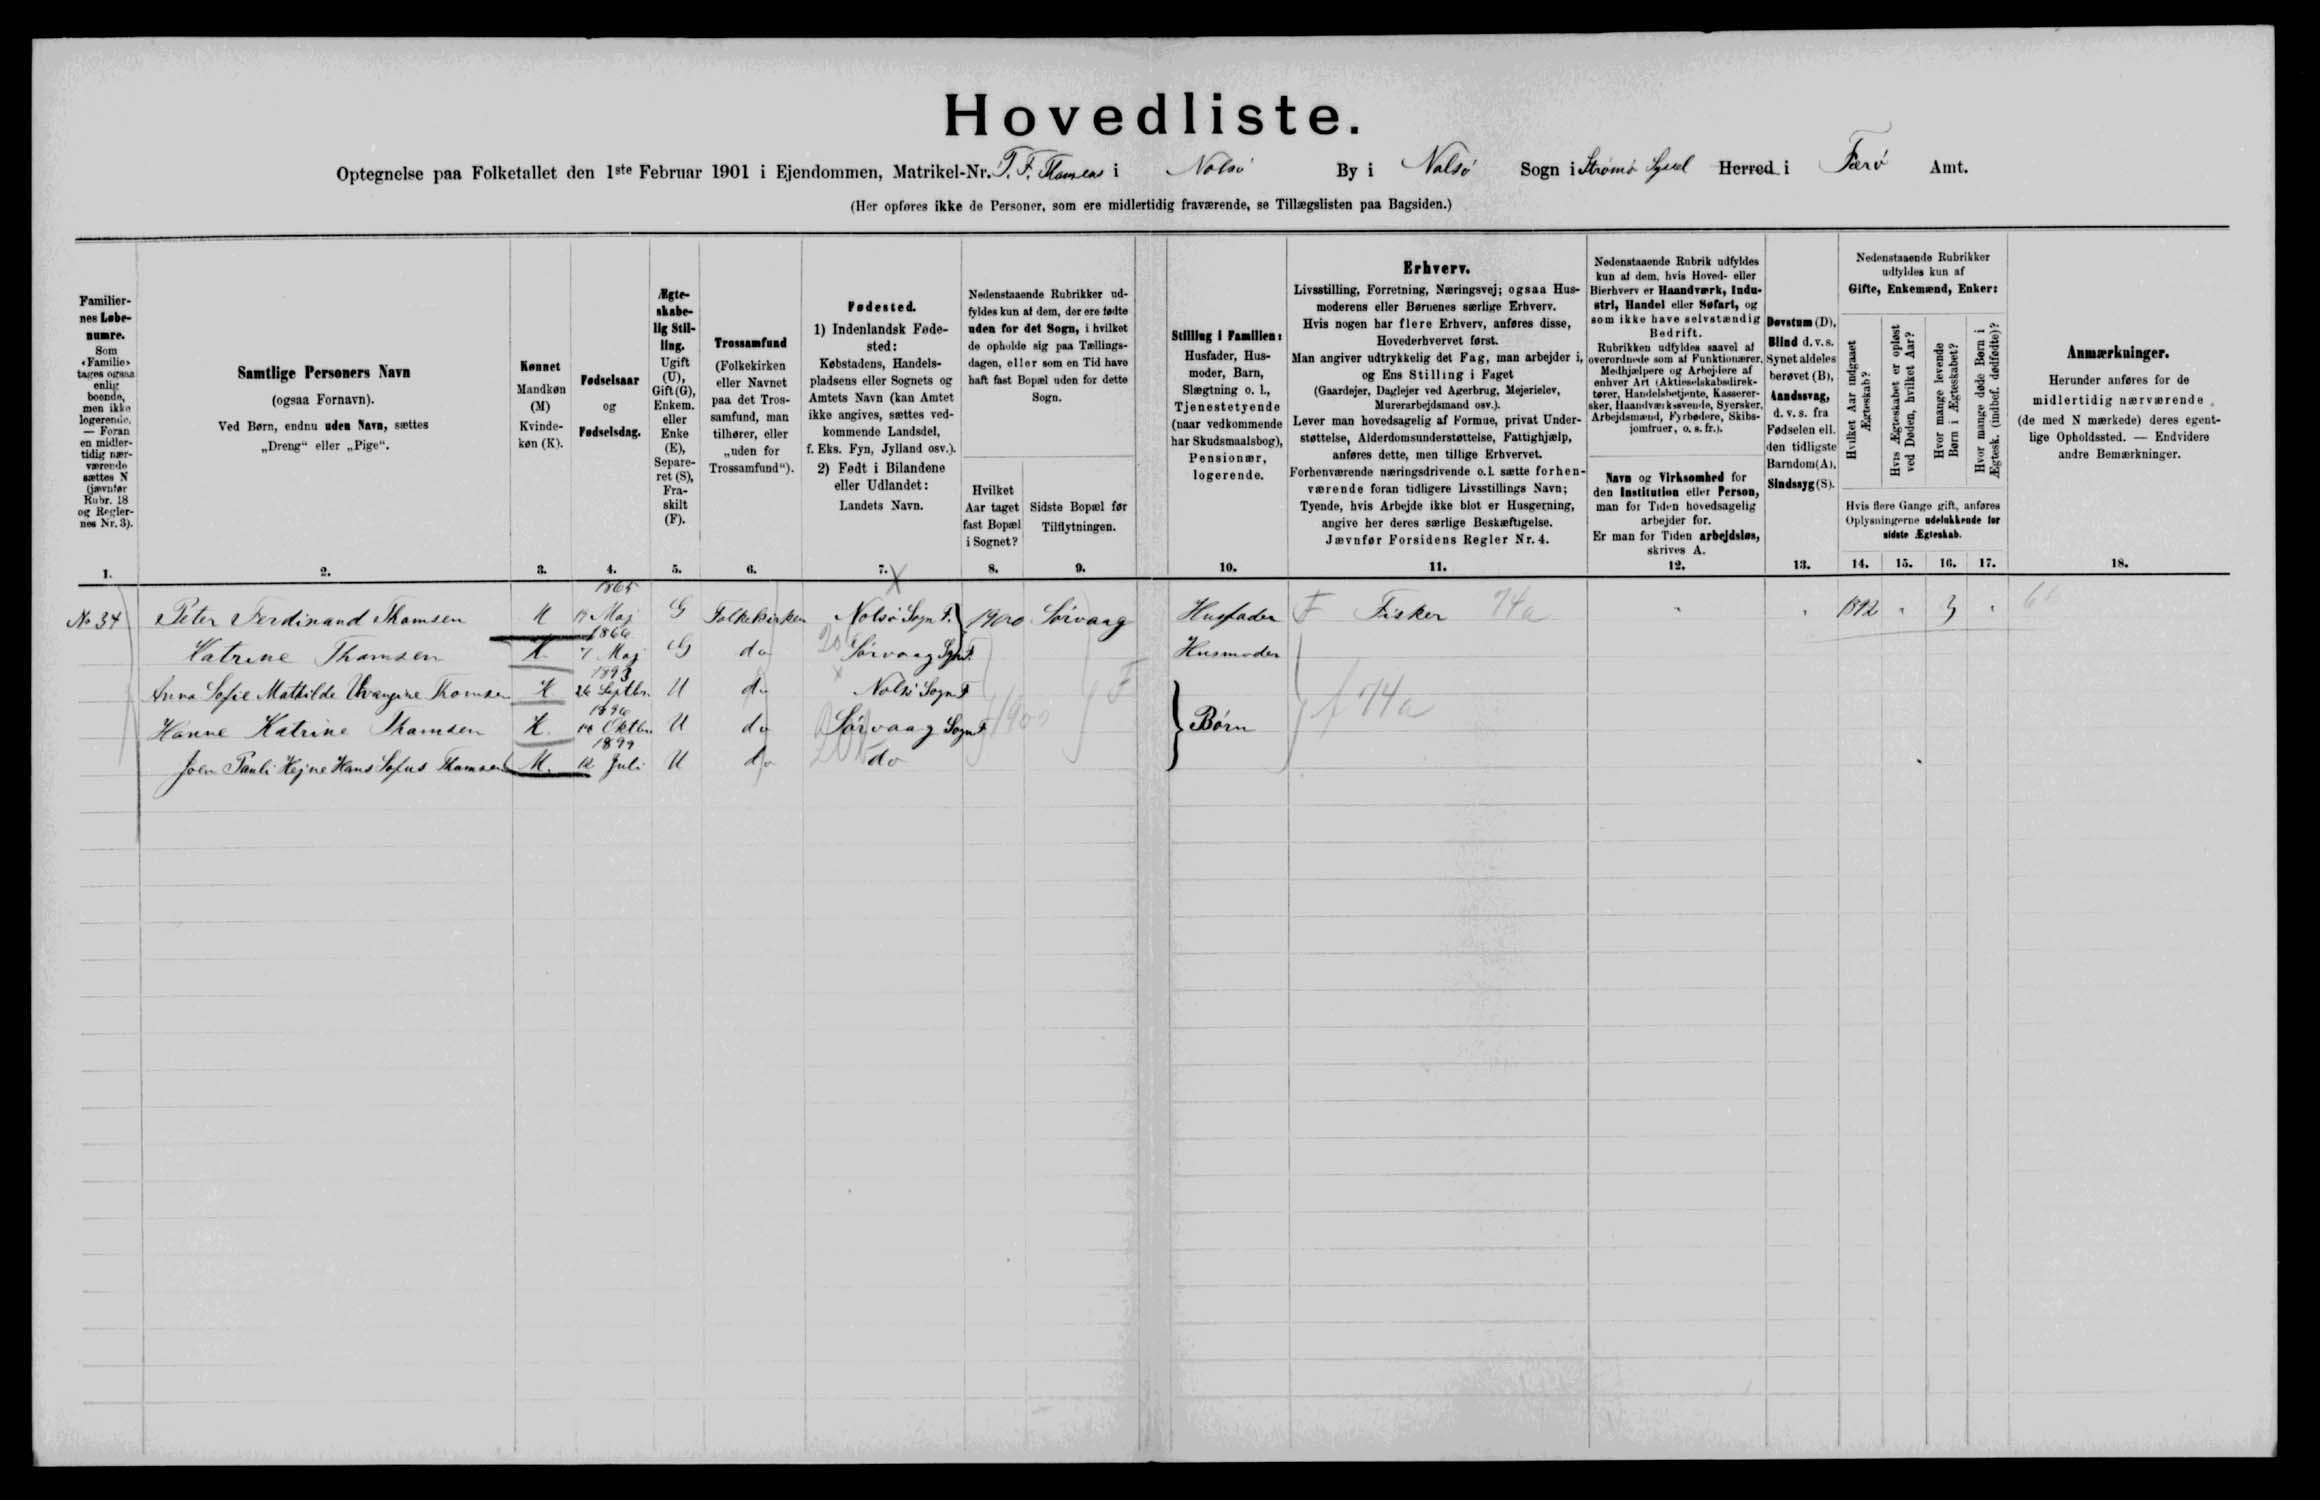 Hovedliste.
Optegnelse paa Folketallet den 1ste Februar 1901 i Ejendommen, Matrikel-Nr. P. F. Thomsens i Nolsø By i Nolsø Sogn i Strømø Syssel Herred i Færø Amt.
(Her opføres ikke de Personer, som ere midlertidig fraværende, se Tillægslisten paa Bagsiden.)
Familier-
nes Løbe-
numre.
Som
«Familie»
tages ogsaa
enlig
boende,
men ikke
logerende.
— Foran
en midler-
tidig nær-
værende
sættes N
(jævnfør
Rubr. 18
og Regler-
nes Nr. 3).
1.
Samtlige Personers Navn
(ogsaa Fornavn).
Ved Børn, endnu uden Navn, sættes
„Dreng“ eller „Pige“.
2.
Kønnet
Mandkøn
(M)
Kvinde-
køn (K).
3.
Fødselsaar
og
Fødselsdag.
4.
Ægte-
skabe-
lig Stil-
ling.
Ugift
(U),
Gift (G),
Enkem.
eller
Enke
(E),
Separe-
ret (S),
Fra-
skilt
(F).
5.
Trossamfund
(Folkekirken
eller Navnet
paa det Tros-
samfund, man
tilhører, eller
„uden for
Trossamfund“).
6.
Fødested.
1) Indenlandsk Føde-
sted:
Købstadens, Handels-
pladsens eller Sognets og
Amtets Navn (kan Amtet
ikke angives, sættes ved-
kommende Landsdel,
f. Eks. Fyn, Jylland osv.).
2) Født i Bilandene
eller Udlandet:
Landets Navn.
7.
Nedenstaaende Rubrikker ud-
fyldes kun af dem, der ere fødte
uden for det Sogn, i hvilket
de opholde sig paa Tællings-
dagen, eller som en Tid have
haft fast Bopæl uden for dette
Sogn.
Hvilket
Aar taget
fast Bopæl
i Sognet?
8.
Sidste Bopæl før
Tilflytningen.
9.
Stilling i Familien:
Husfader, Hus-
moder, Barn,
Slægtning o. l.,
Tjenestetyende
(naar vedkommende
har Skudsmaalsbog),
Pensionær,
logerende.
10.
Erhverv.
Livsstilling, Forretning, Næringsvej; ogsaa Hus-
moderens eller Børnenes særlige Erhverv.
Hvis nogen har flere Erhverv, anføres disse,
Hovederhvervet først.
Man angiver udtrykkelig det Fag, man arbejder i,
og Ens Stilling i Faget
(Gaardejer, Daglejer ved Agerbrug, Mejerielev,
Murerarbejdsmand osv.).
Lever man hovedsagelig af Formue, privat Under-
støttelse, Alderdomsunderstøttelse, Fattighjælp,
anføres dette, men tillige Erhvervet.
Forhenværende næringsdrivende o. l. sætte forhen-
værende foran tidligere Livsstillings Navn;
Tyende, hvis Arbejde ikke blot er Husgerning,
angive her deres særlige Beskæftigelse.
Jævnfør Forsidens Regler Nr. 4.
11.
Nedenstaaende Rubrik udfyldes
kun af dem, hvis Hoved- eller
Bierhverv er Haandværk, Indu-
stri, Handel eller Søfart, og
som ikke have selvstændig
Bedrift.
Rubrikken udfyldes saavel af
overordnede som af Funktionærer,
Medhjælpere og Arbejdere af
enhver Art (Aktieselskabsdirek-
tører, Handelsbetjente, Kasserer-
sker, Haandværkssvende, Syersker,
Arbejdsmænd, Fyrbødere, Skibs-
jomfruer, o. s. fr.).
Navn og Virksomhed for
den Institution eller Person,
man for Tiden hovedsagelig
arbejder for.
Er man for Tiden arbejdsløs,
skrives A.
12.
Døvstum (D),
Blind d. v. s.
Synet aldeles
berøvet (B),
Aandssvag,
d. v. s. fra
Fødselen ell.
den tidligste
Barndom (A),
Sindssyg (S).
13.
Nedenstaaende Rubrikker
udfyldes kun af
Gifte, Enkemænd, Enker:
Hvilket Aar indgaaet
Ægteskab?
Hvis Ægteskabet er opløst
ved Døden, hvilket Aar?
Hvor mange levende
Børn i Ægteskabet?
Hvor mange døde Børn i
Ægtesk. (indbef. dødfødte)?
Hvis flere Gange gift, anføres
Oplysningerne udelukkende for
sidste Ægteskab.
14. 15. 16. 17.
Anmærkninger.
Herunder anføres for de
midlertidig nærværende
(de med N mærkede) deres egent-
lige Opholdssted. — Endvidere
andre Bemærkninger.
18.
No 34 Peter Ferdinand Thomsen M 1865 17 Maj G Folkekirken Nolsø Sogn F. 1900 Sørvaag Husfader F Fisker 74a 1892 3
Katrine Thomsen K 1866 7 Maj G do Sørvaag Sogn F. Husmoder
Anna Sofie Mathilde Thomsen K 1893 26 Septbr. U do Nolsø Sogn F
Hanne Katrine Thomsen K. 1896 10 Oktbr. U do Sørvaag Sogn F 1900 F Børn f 74a
Joen Pauli Hejne Hans Sofus Thomsen M. 1899 12 Juli U do do